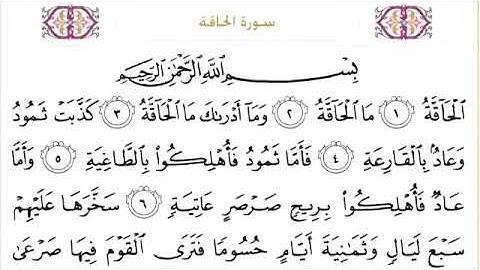 سورة الحاقة
بِسْمِ ٱللَّهِ ٱلرَّحْمَٰنِ ٱلرَّحِيمِ
ٱلْحَآقَّةُ ١ مَا ٱلْحَآقَّةُ ٢ وَمَآ أَدْرَىٰكَ مَا ٱلْحَآقَّةُ ٣ كَذَّبَتْ ثَمُودُ
وَعَادٌۢ بِٱلْقَارِعَةِ ٤ فَأَمَّا ثَمُودُ فَأُهْلِكُوا۟ بِٱلطَّاغِيَةِ ٥ وَأَمَّا
عَادٌ فَأُهْلِكُوا۟ بِرِيحٍ صَرْصَرٍ عَاتِيَةٍ ٦ سَخَّرَهَا عَلَيْهِمْ
سَبْعَ لَيَالٍ وَثَمَٰنِيَةَ أَيَّامٍ حُسُومًا فَتَرَى ٱلْقَوْمَ فِيهَا صَرْعَىٰ